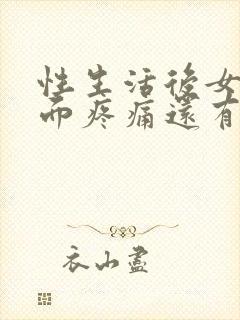 性生活後女
而疼痛還有
衣山盡